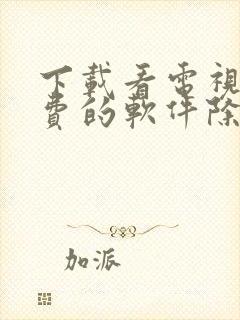 下載看電視
費的軟件除
加派